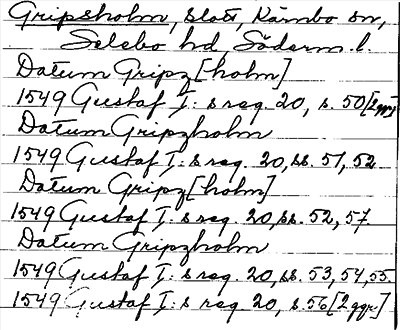 Gripsholm, slott, Kärnbo sn,
Selebo hd, Söderm. l.
Datum Gripz[holm]
1549 Gustaf I:s reg. 20, s. 50 [2 ggr]
Datum Gripzholm
1549 Gustaf I:s reg. 20, ss. 51, 52
Datum Gripz[holm]
1549 Gustaf I:s reg. 20, ss. 52, 57.
Datum Gripzholm
1549 Gustaf I:s reg. 20, ss. 53, 54, 55.
1549 Gustaf I:s reg. 20, s. 56 [2 ggr]